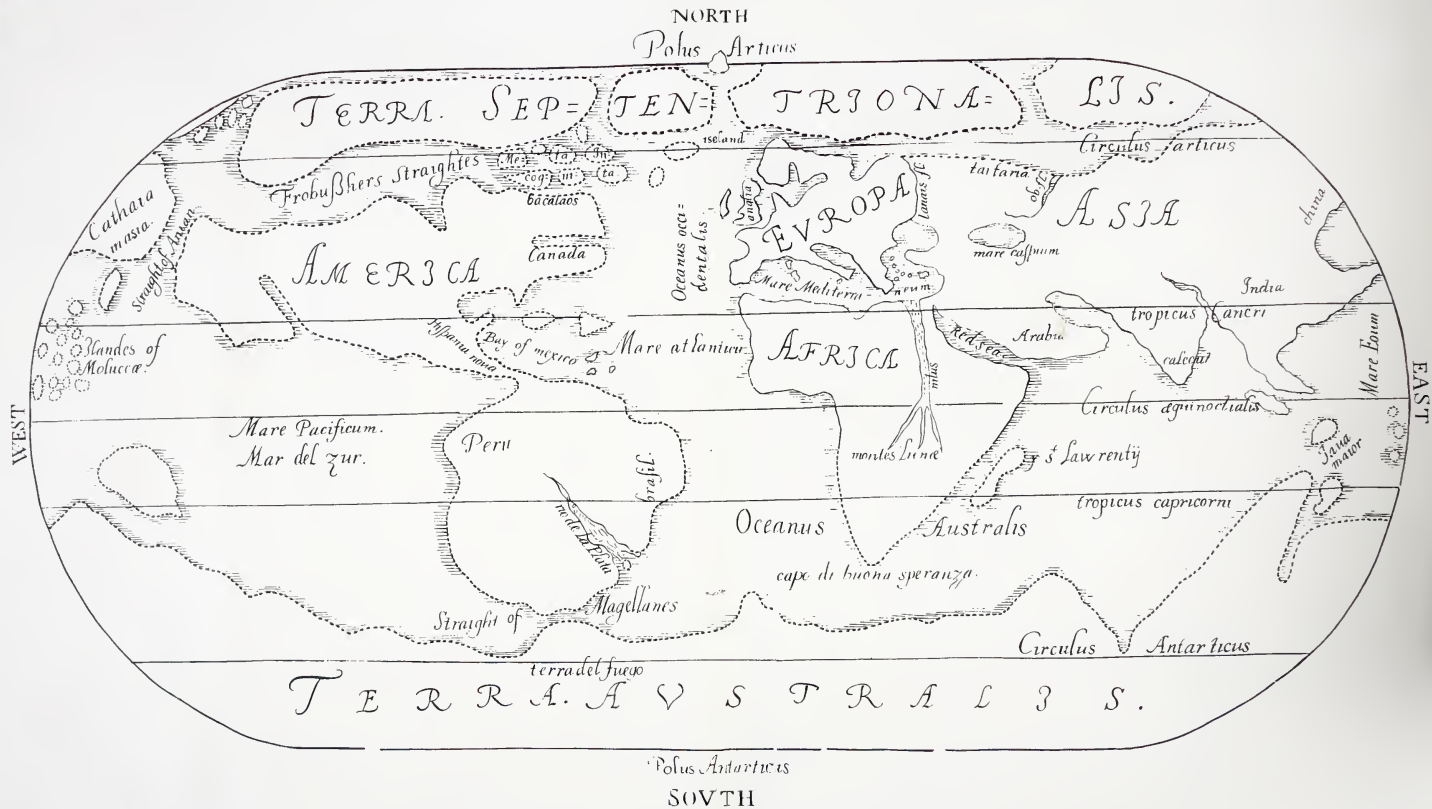 NORTH
Polus Articus
TERRA. SEP= TEN= TRIONA= LIS.
Iseland
Circulus articus
Frobußhers Straightes
Me ta In
cog ni ta
bacalaos
tartaria
ob. fl.
Cathaia
masia
Straight of Anian
anglia
EVROPA
tanais fl.
ASIA
china
AMERICA
Canada
Oceanus occi=
dentalis.
mare caspium
Mare Mediterra=
neum
India
tropicus Cancri
Ilandes of
Moluccæ.
Hispania nova
Bay of mexico
Mare atlanticum
AFRICA
nilus
Red sea
Arabia
calecut
Mare Eoum
WEST
EAST
Circulus æquinoctialis
Mare Pacificum.
Mar del zur.
Peru
brasil.
montes Lunæ
y st Lawrentij
Iava
maior
tropicus capricorni
rio de la Plata
Oceanus Australis
cape di buona speranza.
Straight of Magellanes
Circulus Antarticus
terra del fuego
TERRA. AVSTRALIS.
Polus Antarticis
SOVTH